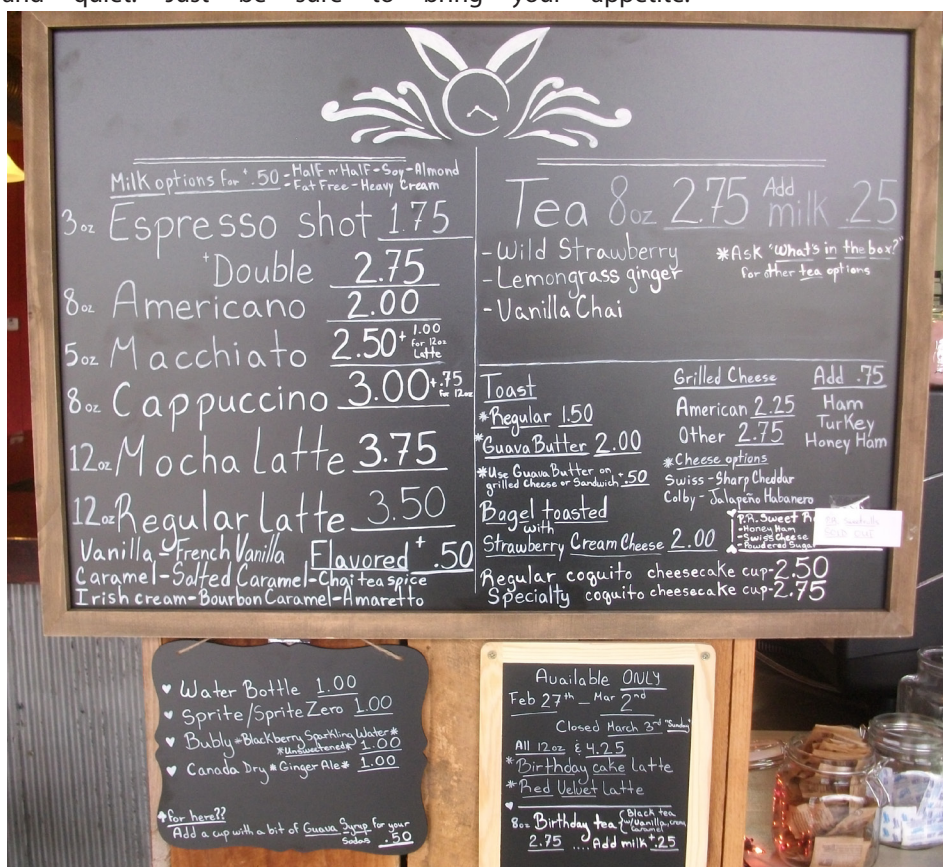 and quiet. Just be sure to bring your appetite.
Milk options for +.50 - Half n' Half - Soy - Almond
- Fat Free - Heavy Cream
3oz Espresso shot 1.75
+Double 2.75
8oz Americano 2.00
5oz Macchiato 2.50 + 1.00 for 12oz Latte
8oz Cappuccino 3.00 +.75 for 12oz
12oz Mocha Latte 3.75
12oz Regular Latte 3.50
Flavored +.50
Vanilla - French Vanilla
Caramel - Salted Caramel - Chai tea spice
Irish cream - Bourbon Caramel - Amaretto
Tea 8oz 2.75 Add milk .25
- Wild Strawberry
- Lemongrass ginger
- Vanilla Chai
*Ask "What's in the box?"
for other tea options
Toast
*Regular 1.50
*Guava Butter 2.00
*Use Guava Butter on
grilled cheese or Sandwich +.50
Bagel toasted
with
Strawberry Cream Cheese 2.00
Grilled Cheese
American 2.25
Other 2.75
*Cheese options
Swiss - Sharp Cheddar
Colby - Jalapeño Habanero
Add .75
Ham
Turkey
Honey Ham
P.R. Sweet
- Honey Ham
- Swiss Cheese
- Powdered Sugar
Regular coquito cheesecake cup - 2.50
Specialty coquito cheesecake cup - 2.75
♥ Water Bottle 1.00
♥ Sprite/Sprite Zero 1.00
♥ Bubly *Blackberry Sparkling Water*
*Unsweetened* 1.00
♥ Canada Dry *Ginger Ale* 1.00
for here??
Add a cup with a bit of Guava Syrup for your
sodas .50
Available ONLY
Feb 27th - Mar 2nd
Closed March 3rd "Sunday"
All 12oz & 4.25
*Birthday cake Latte
*Red Velvet Latte
♥
8oz Birthday tea {Black tea
w/Vanilla, cream,
Caramel
2.75 .... Add milk +.25